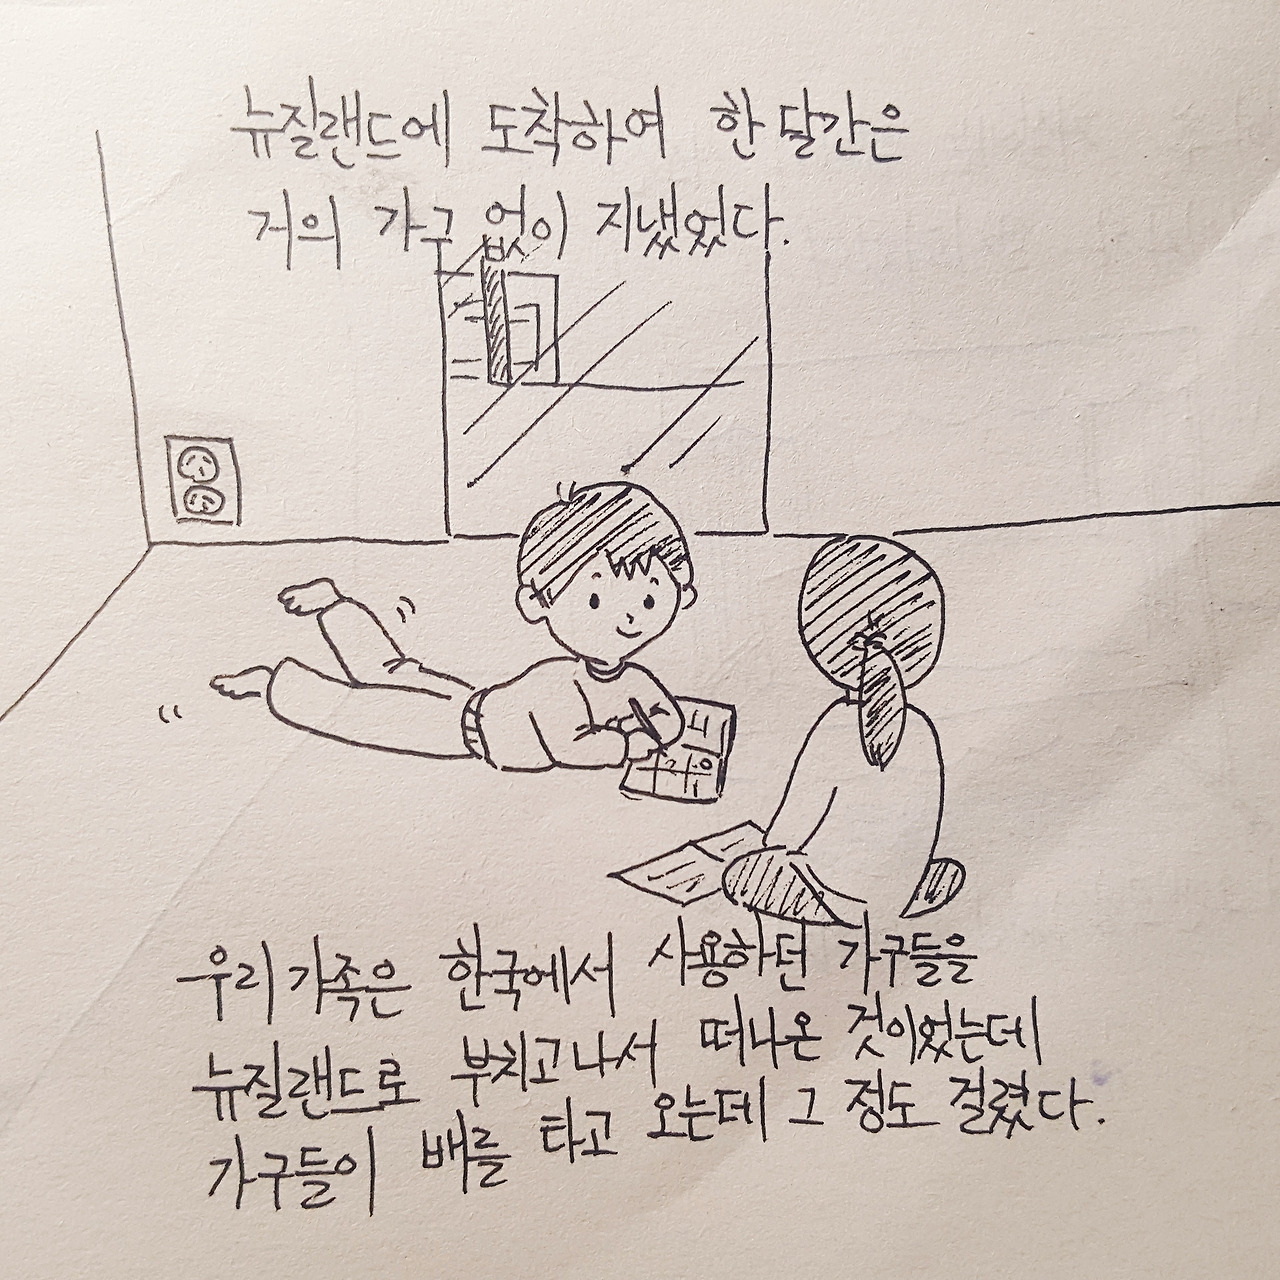 뉴질랜드에 도착하여 한 달간은
거의 가구 없이 지냈었다.
우리 가족은 한국에서 사용하던 가구들을
뉴질랜드로 부치고나서 떠나온 것이었는데
가구들이 배를 타고 오는데 그 정도 걸렸다.